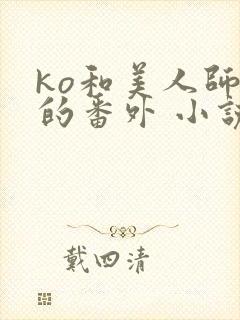 ko和美人師
的番外 小說
戴四清